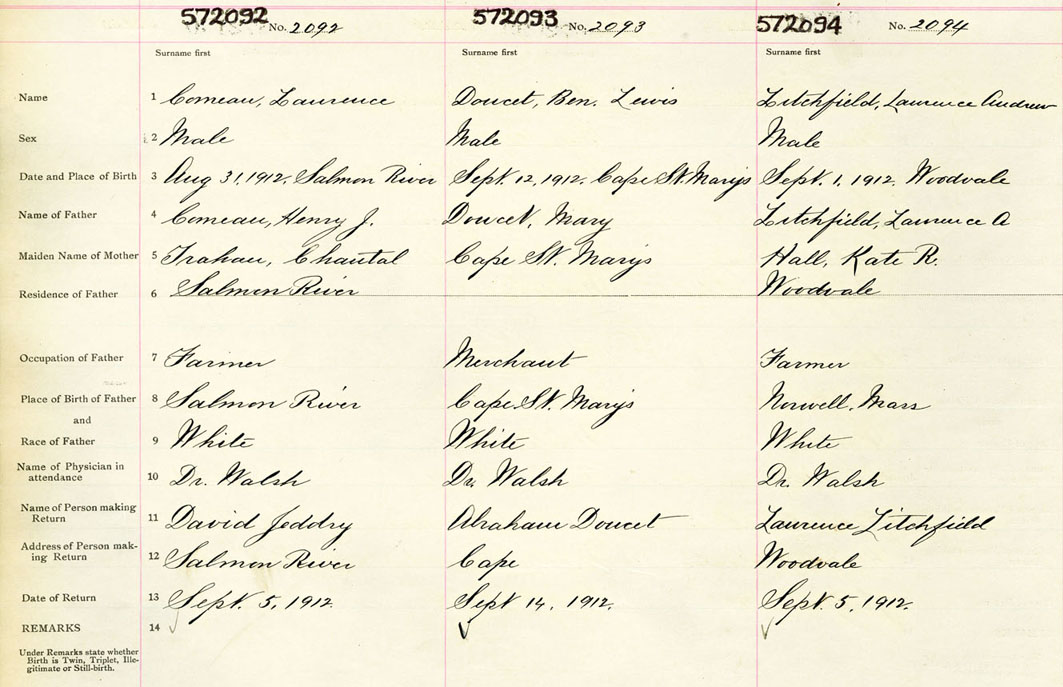 572092 No. 2092 572093 No. 2093 572094 No. 2094
Surname first Surname first Surname first
Name 1 Comeau, Laurence Doucet, Ben. Lewis Litchfield, Laurence Andrew
Sex 2 Male Male Male
Date and Place of Birth 3 Aug 31, 1912. Salmon River Sept. 12, 1912. Cape St. Marys Sept. 1, 1912. Woodvale
Name of Father 4 Comeau, Henry J. Doucet, Mary Litchfield, Laurence A
Maiden Name of Mother 5 Trahan, Chantal Cape St. Marys Hall, Kate R.
Residence of Father 6 Salmon River Woodvale
Occupation of Father 7 Farmer Merchant Farmer
Place of Birth of Father 8 Salmon River Cape St. Marys Norwell, Mass
and
Race of Father 9 White White White
Name of Physician in
attendance 10 Dr. Walsh Dr. Walsh Dr. Walsh
Name of Person making
Return 11 David Jeddry Abraham Doucet Laurence Litchfield
Address of Person mak-
ing Return 12 Salmon River Cape Woodvale
Date of Return 13 Sept. 5, 1912. Sept 14, 1912. Sept. 5, 1912.
REMARKS 14 ✓ ✓ ✓
Under Remarks state whether
Birth is Twin, Triplet, Ille-
gitimate or Still-birth.